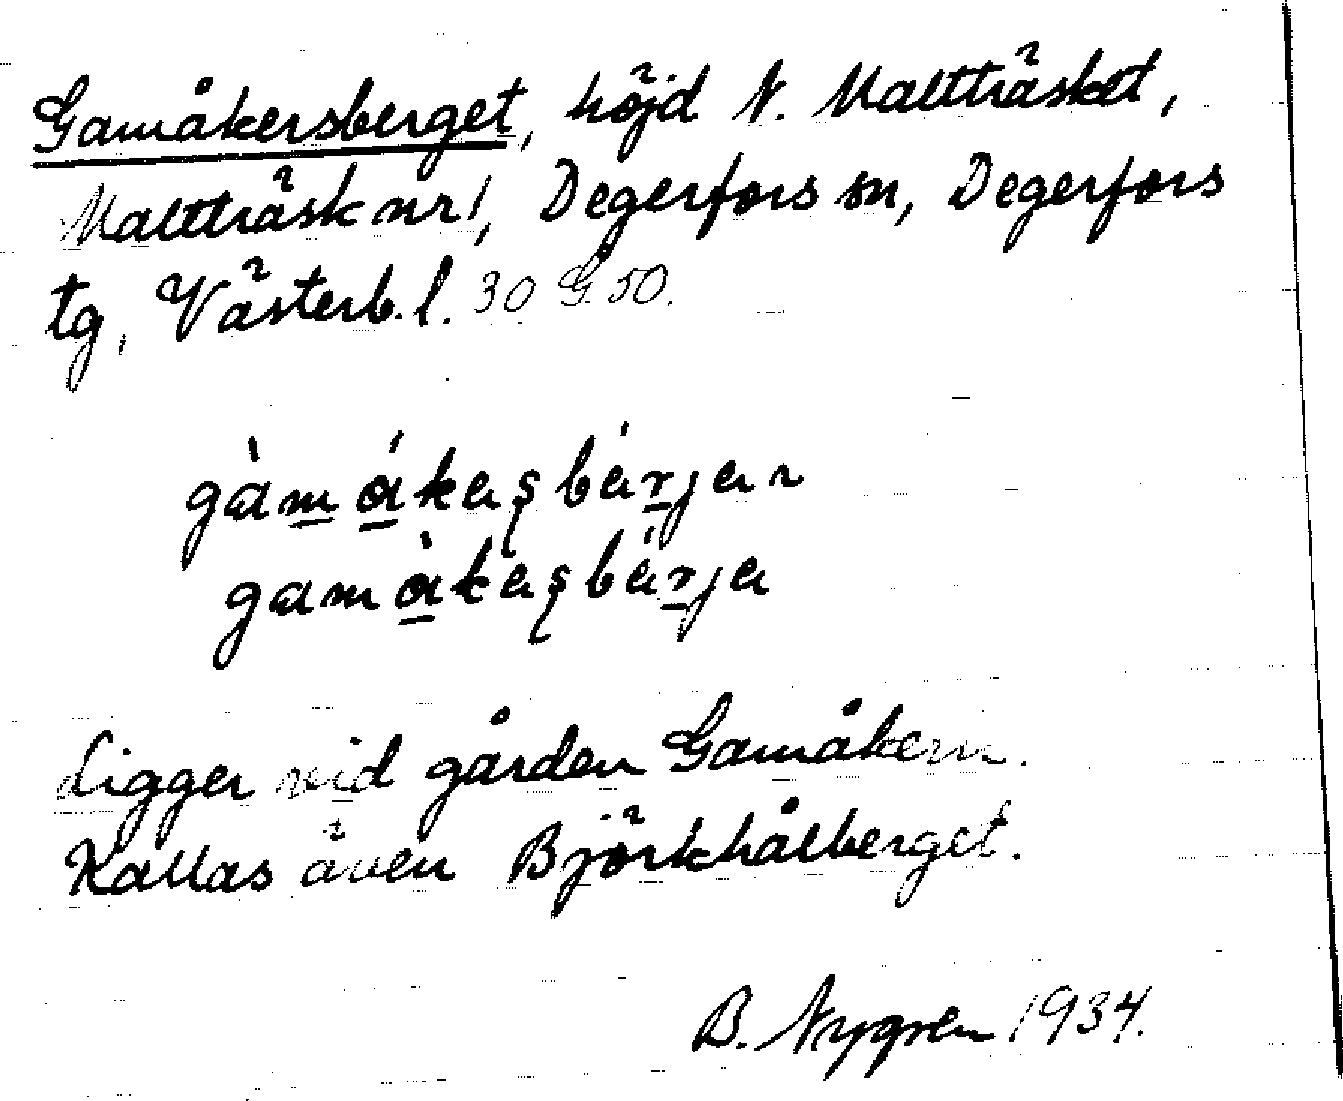 Gamåkersberget, höjd N. Maltträsket,
Maltträsk nr 1, Degerfors sn, Degerfors
tg, Västerb. l. 30 G 50.
Ligger vid gården Gamåkern.
Kallas även Björkhålberget.
B. Nygren 1934.